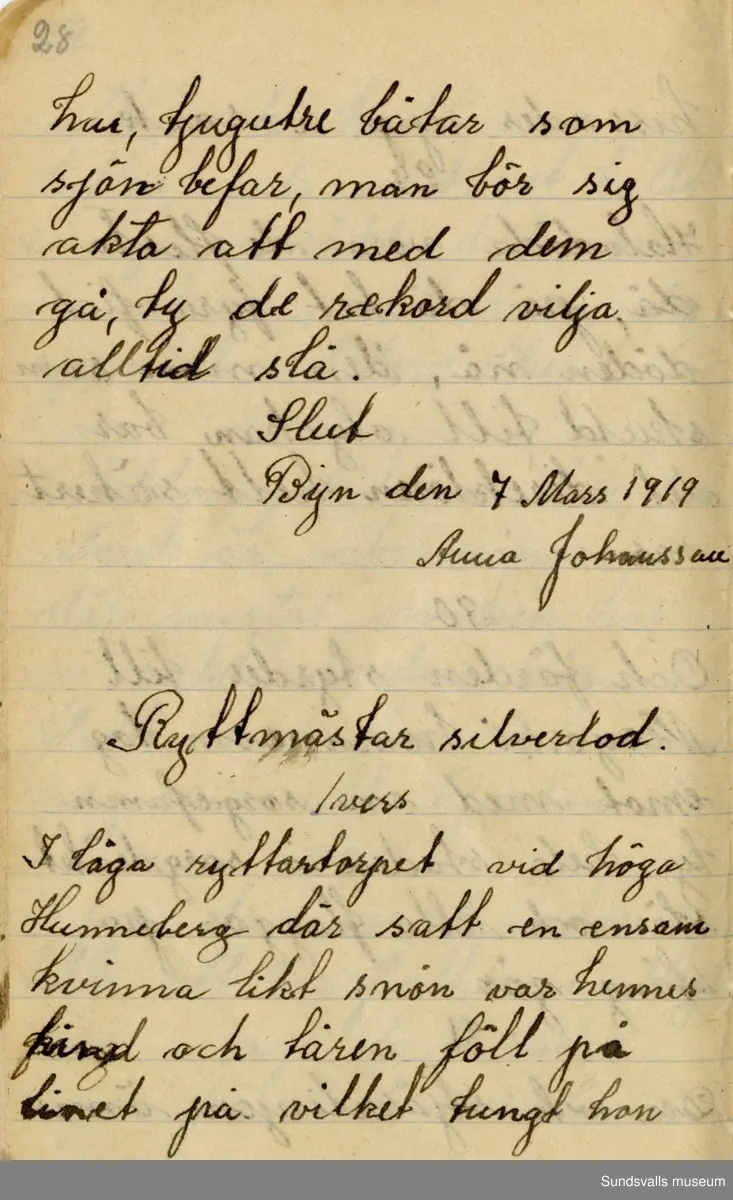 28
har, tjugutre båtar som
sjön befar, man bör sig
akta att med dem
gå, ty de rekord vilja
alltid slå.
Slut
Byn den 7 Mars 1919
Anna Johansson
Ryttmästar silverlod.
1 vers
I låga ryttartorpet vid höga
Hunneberg där satt en ensam
kvinna likt snön var hennes
kind och tåren föll på
linet på vilket tungt hon
Sundsvalls museum